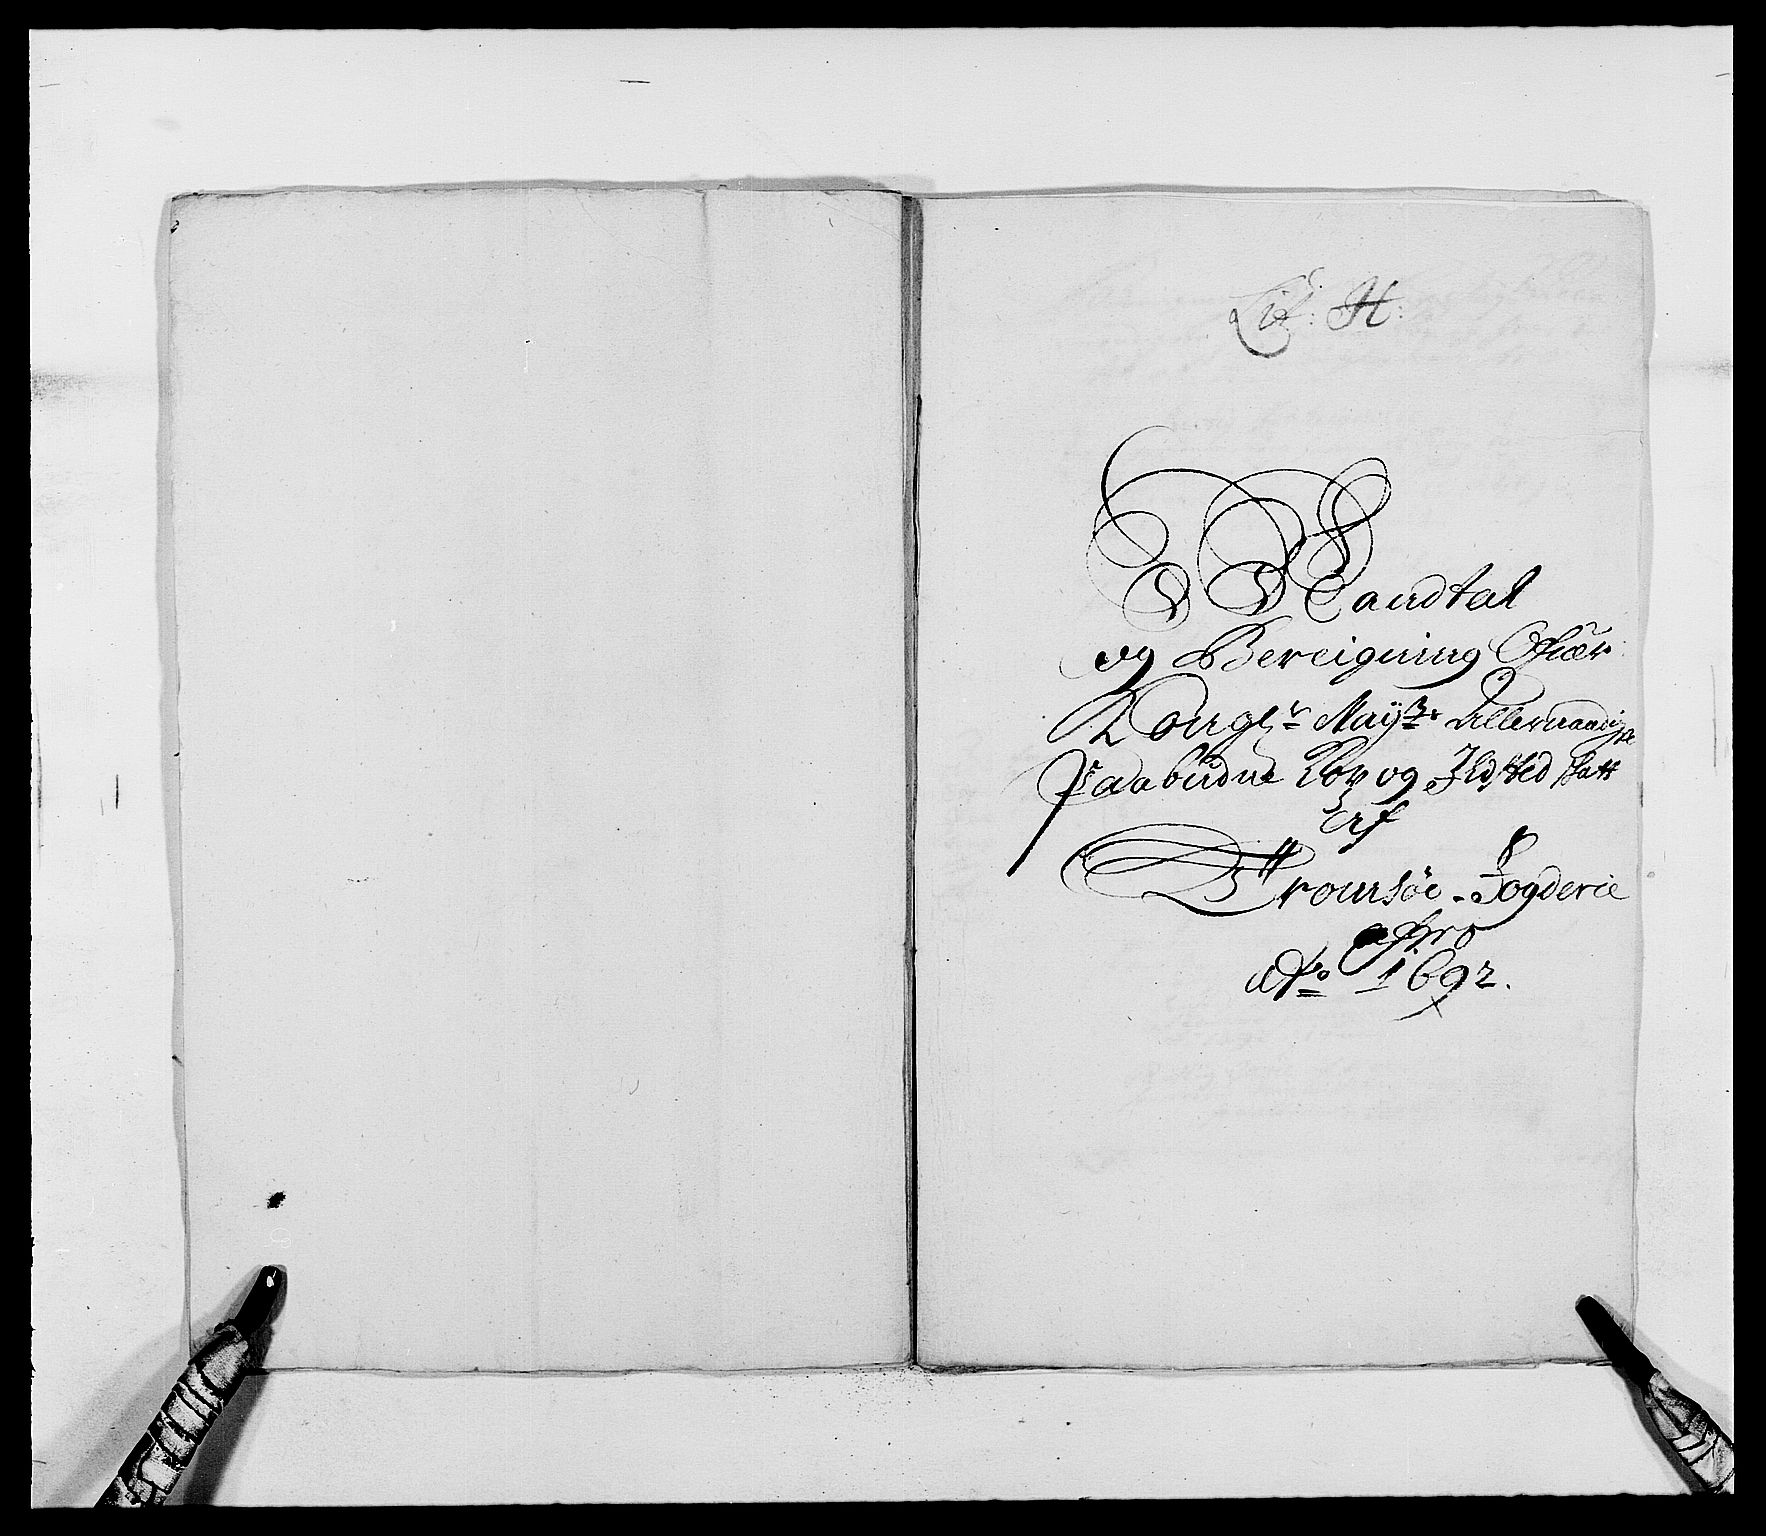 Lit: H:
Mandtal
og Bereigning Ofuer
Kongl: Mayts: Allernaadigste
Paabudne Kop og Ildsted skatt
Af
Tromsöe - Fogderie
pro
Ao 1692.